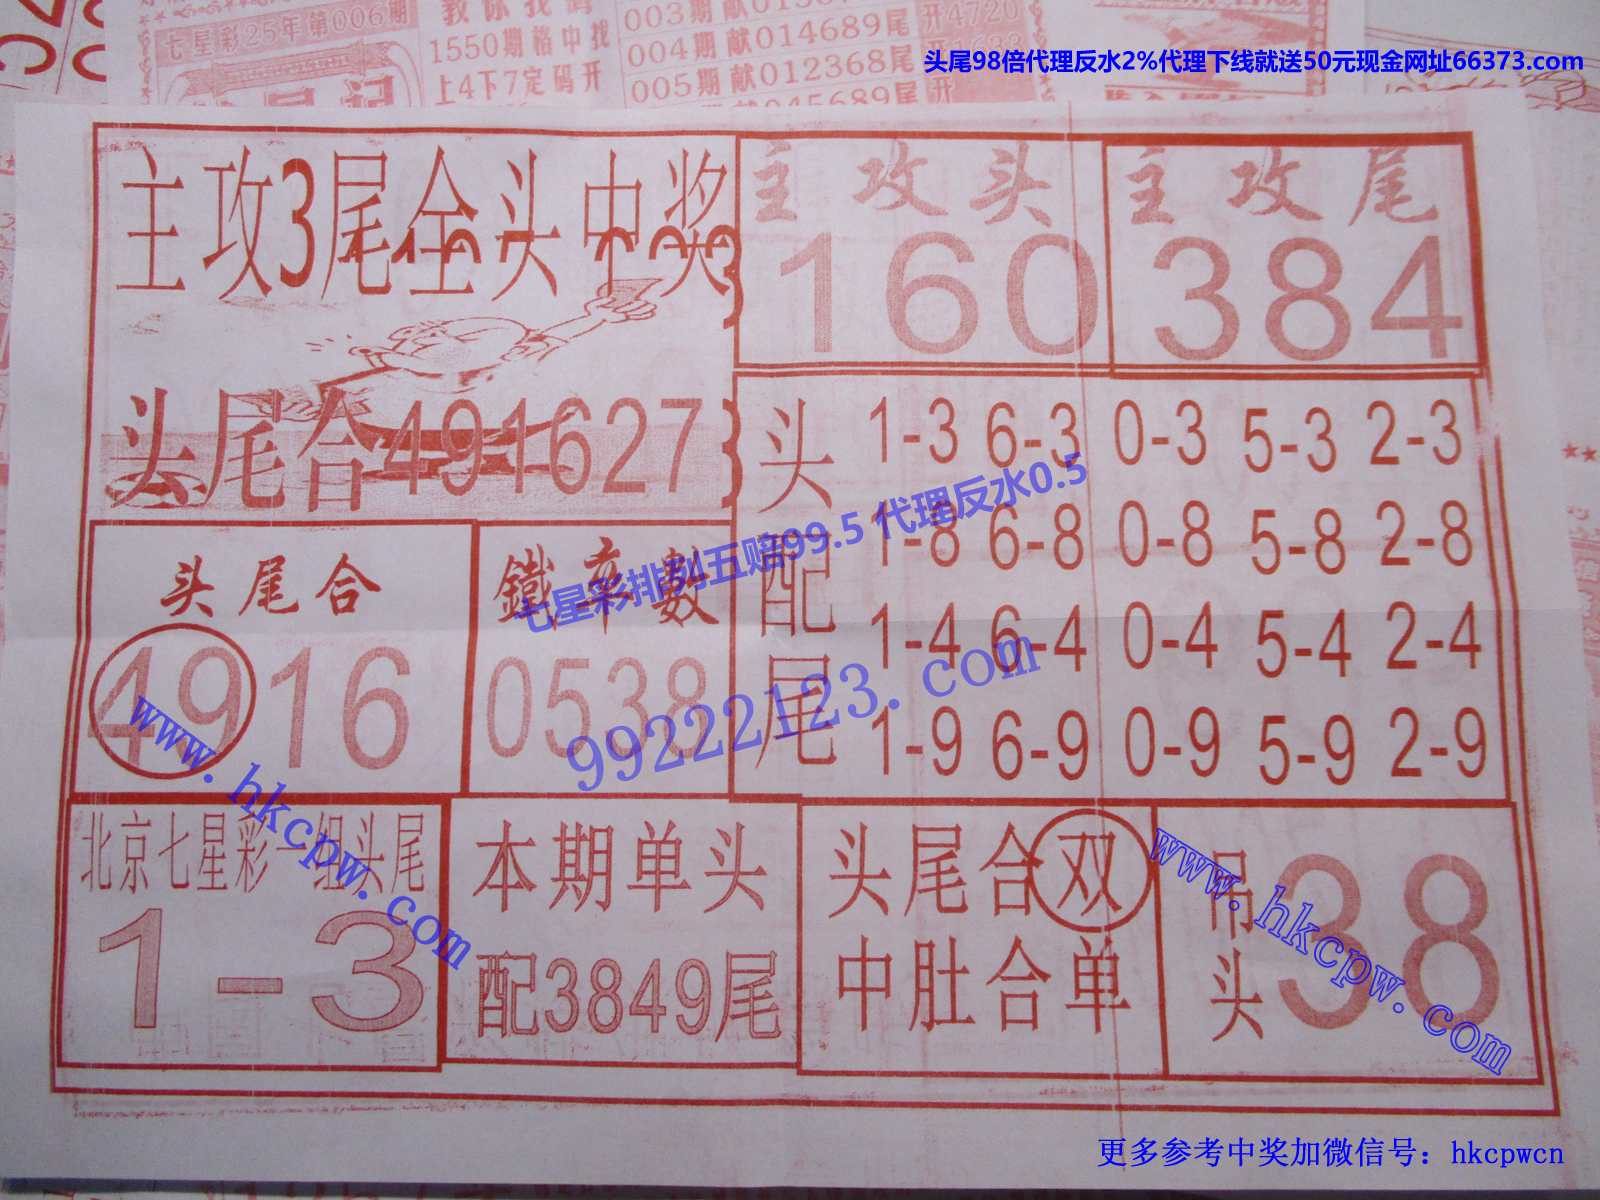 七星彩25年第006期
1550期格中找
上4下7定码开
003期献
004期献014689尾
开4720
005期献012368尾
头尾98倍代理反水2%代理下线就送50元现金网址66373.com
主攻3尾全头中奖
主攻头
160
主攻尾
384
头尾合491627
头配尾
1-3 6-3 0-3 5-3 2-3
1-8 6-8 0-8 5-8 2-8
1-4 6-4 0-4 5-4 2-4
1-9 6-9 0-9 5-9 2-9
七星彩排列五赔99.5 代理反水0.5
99222123.com
头尾合
4916
鐵率數
0538
www.hkcpw.com
北京七星彩一组头尾
1-3
本期单头
配3849尾
头尾合双
中肚合单
吊头
38
www.hkcpw.com
更多参考中奖加微信号：hkcpwcn